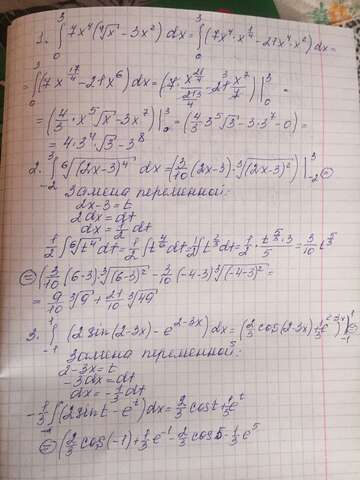 1. ∫₀³ 7x⁴(⁴√x − 3x²) dx = ∫₀³ (7x⁴·x^(1/4) − 21x⁴·x²) dx =
= ∫₀³ (7x^(17/4) − 21x⁶) dx = (7· x^(21/4) / (21/4) − 21 x⁷/7) |₀³ =
= (4/3 · x⁵ ⁴√x − 3x⁷) |₀³ = (4/3 · 3⁵ ⁴√3 − 3·3⁷ − 0) =
= 4·3⁴ · ⁴√3 − 3⁸
2. ∫₋₂³ ⁶√(2x−3)⁴ dx = (3/10 (2x−3) · ³√(2x−3)²) |₋₂³ =
Замена переменной:
2x−3 = t
2dx = dt
dx = 1/2 dt
1/2 ∫ ⁶√t⁴ dt = 1/2 ∫ t^(4/6) dt = 1/2 ∫ t^(2/3) dt = 1/2 · t^(5/3)·3 / 5 = 3/10 t^(5/3)
= (3/10 (6−3) ³√(6−3)² − 3/10 (−4−3) ³√(−4−3)² =
= 9/10 ³√9 + 21/10 ³√49
3. ∫₋₁¹ (2 sin(2−3x) − e^(2−3x)) dx = (2/3 cos(2−3x) + 1/3 e^(2−3x)) |₋₁¹ =
Замена переменной:
2−3x = t
−3dx = dt
dx = −1/3 dt
−1/3 ∫ (2 sin t − e^t) dx = 2/3 cos t + 1/3 e^t
= (2/3 cos(−1) + 1/3 e⁻¹ − 2/3 cos 5 − 1/3 e⁵